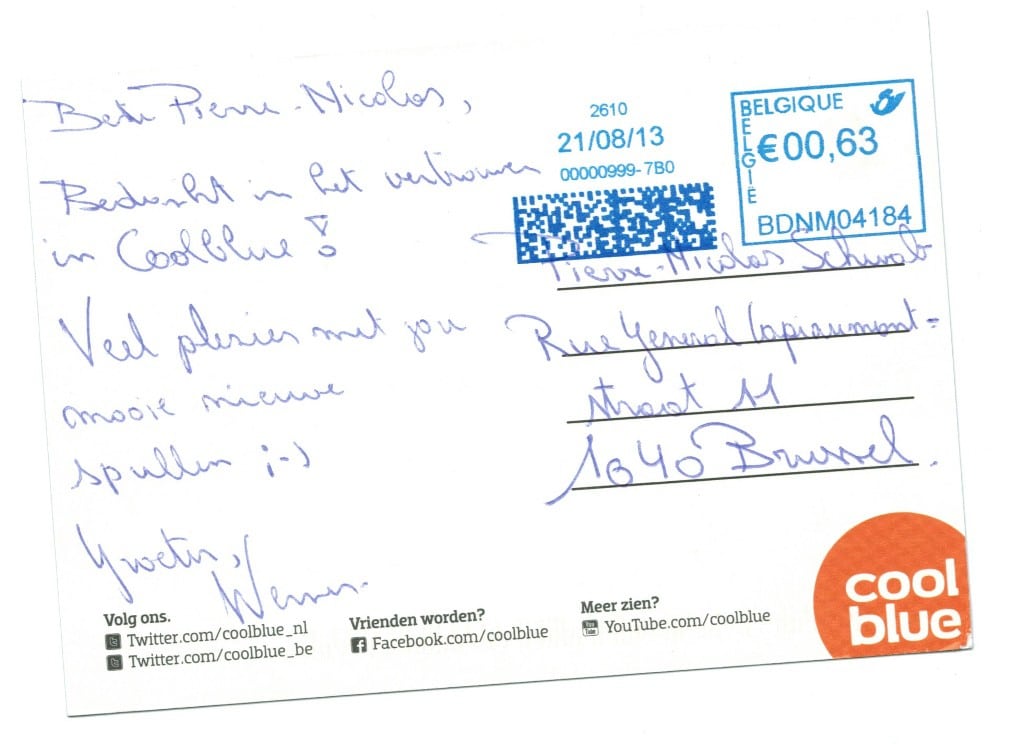 Beste Pierre-Nicolas,
Bedankt in het vertrouwen
in Coolblue!
Veel plezier met jou
mooie nieuwe
spullen ;-)
Groeten,
Werner
2610
21/08/13
00000999-7B0
BELGIQUE
BELGIË
€00,63
BDNM04184
Pierre-Nicolas Schwab
Rue General Capiaumont-
straat 11
1040 Brussel.
Volg ons.
Twitter.com/coolblue_nl
Twitter.com/coolblue_be
Vrienden worden?
Facebook.com/coolblue
Meer zien?
You Tube
YouTube.com/coolblue
cool
blue